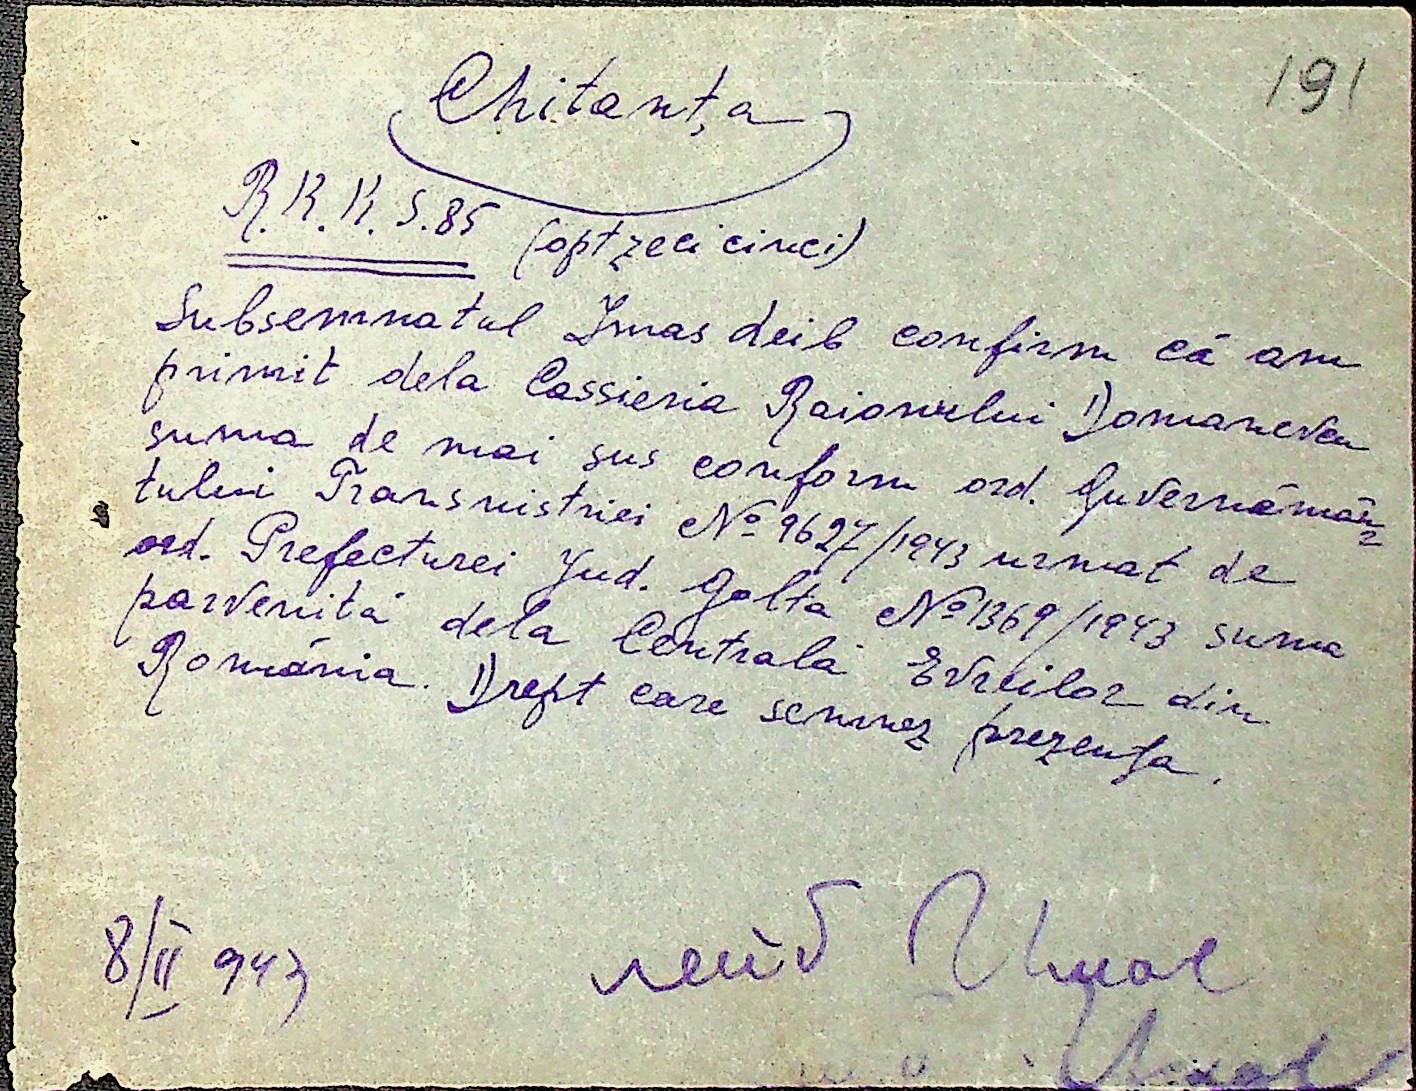 191
Chitanța
R.K.K.S.85 (optzeci cinci)
Subsemnatul Imas Leib confirm că am
primit dela Cassieria Raionului Domanevca
suma de mai sus conform ord. Guvernămân-
tului Transnistriei No 9627/1943 urmat de
ord. Prefecturei Jud. Golta No 1369/1943 suma
parvenită dela Centrala Evreilor din
România. Drept care semnez prezenta.
8/II 943
Лейб Имас